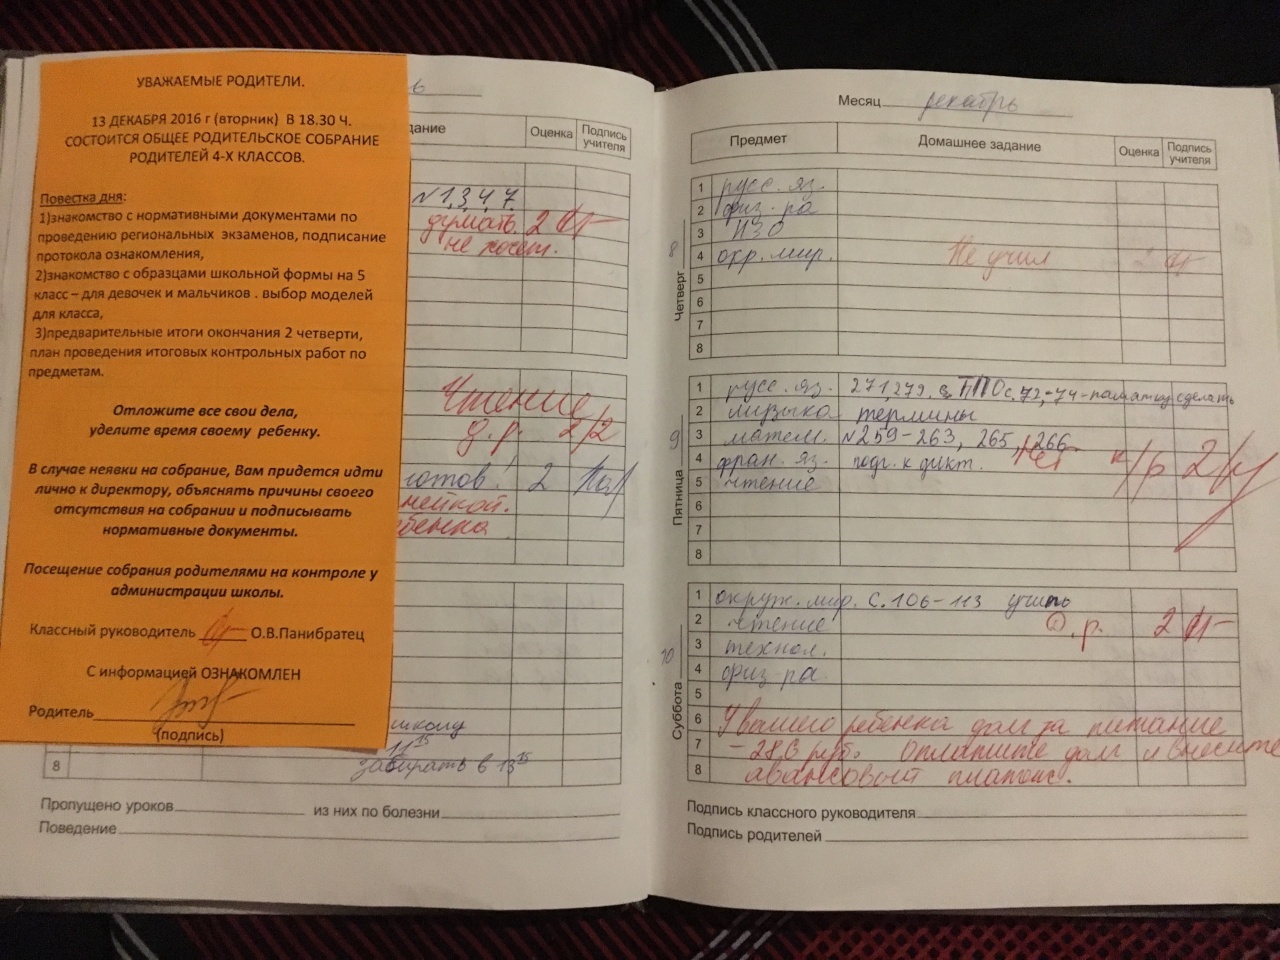 УВАЖАЕМЫЕ РОДИТЕЛИ.
13 ДЕКАБРЯ 2016 г (вторник) В 18.30 Ч.
СОСТОИТСЯ ОБЩЕЕ РОДИТЕЛЬСКОЕ СОБРАНИЕ
РОДИТЕЛЕЙ 4-Х КЛАССОВ.
Повестка дня:
1)знакомство с нормативными документами по
проведению региональных экзаменов, подписание
протокола ознакомления,
2)знакомство с образцами школьной формы на 5
класс – для девочек и мальчиков . выбор моделей
для класса,
3)предварительные итоги окончания 2 четверти,
план проведения итоговых контрольных работ по
предметам.
Отложите все свои дела,
уделите время своему ребенку.
В случае неявки на собрание, Вам придется идти
лично к директору, объяснять причины своего
отсутствия на собрании и подписывать
нормативные документы.
Посещение собрания родителями на контроле у
администрации школы.
Классный руководитель О.В.Панибратец
С информацией ОЗНАКОМЛЕН
Родитель
(подпись)
ь
дание Оценка Подпись учителя
№1,3,4,7.
думать 2
не хочет.
Чтение
д.р. 2/2
готов! 2
нейкой.
ебенка
школу
11 15
8 забирать в 13 15
Пропущено уроков из них по болезни
Поведение
Месяц декабрь
Предмет Домашнее задание Оценка Подпись учителя
Четверг 8
1 русс. яз.
2 физ-ра
3 ИЗО
4 окр. мир. Не учил 2
5
6
7
8
Пятница 9
1 русс. яз. 271,279. с. 72,-74-памятку сделать
2 музыка термины
3 матем. №259-263, 265, 266
4 фран. яз. подг. к дикт. Нет к/р 2
5 чтение
6
7
8
Суббота 10
1 окруж. мир. с. 106-113 учить
2 чтение Д.р. 2
3 технол.
4 физ-ра
5
6 У вашего ребенка долг за питание
7 -286 руб. Оплатите долг и внесите
8 авансовый платеж.
Подпись классного руководителя
Подпись родителей